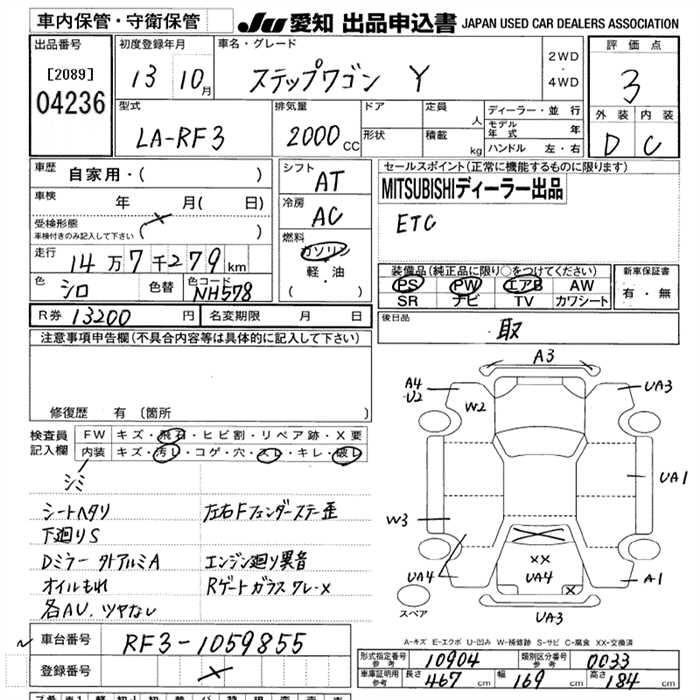 車内保管・守衛保管
JU 愛知 出品申込書 JAPAN USED CAR DEALERS ASSOCIATION
出品番号
[2089]
04236
初度登録年月
13 10月
車名・グレード
ステップワゴン Y
2WD
・
4WD
評価点
3
外装 内装
D C
型式
LA-RF3
排気量
2000cc
ドア
形状
定員 人
積載 kg
ディーラー・並行
モデル年式 年
ハンドル 左・右
車歴 自家用・( )
車検 年 月( 日)
受検形態
車検付きのみ記入して下さい ( )
走行 14万7千279km
色 シロ 色替 色コード NH578
シフト AT
冷房 AC
燃料
ガソリン
軽・油
( )
セールスポイント(正常に機能するものに限ります)
MITSUBISHIディーラー出品
ETC
装備品(純正品に限り○をつけてください)
PS PW エアB AW
SR ナビ TV カワシート
新車保証書
有・無
R券 13200円 名変期限 月 日
後日品
取
注意事項申告欄(不具合内容等は具体的に記入して下さい)
修復歴 有(箇所 )
検査員
記入欄
FW キズ・飛石・ヒビ割・リペア跡・X要
内装 キズ・汚レ・コゲ・穴・スレ・キレ・破レ
シミ
シートヘタリ 左右Fフェンダーステー歪
下廻りS
Dミラー外アルミA エンジン廻り異音
オイルもれ RゲートガラスグレーX
各AU.ツヤなし
A3
A4
U2
W2
UA3
UA1
W3
XX
UA4
UA4
X
A1
UA3
cm
cm
cm
cm
スペア
A-キズ E-エクボ U-凹み W-補修跡 S-サビ C-腐食 XX-交換済
車台番号 RF3-1059855
登録番号
形式指定番号 参考 10904 類別区分番号 参考 0033
車庫証明用 参考 長さ 467cm 幅 169cm 高さ 184cm